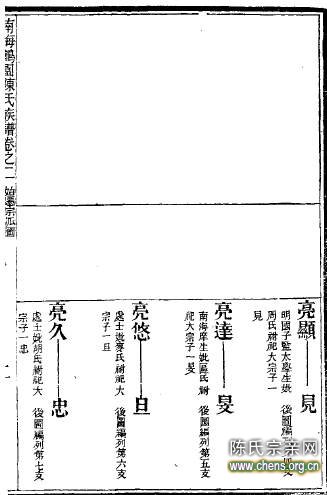 亮顯 見
明國子監太學生妣 後圖編列第四支
周氏祔祀大宗子一
見
亮達 旻
南海庠生妣區氏祔 後圖編列第五支
祀大宗子一旻
亮悠 旦
處士妣麥氏祔祀大 後圖編列第六支
宗子一旦
亮久 忠
處士妣胡氏祔祀大 後圖編列第七支
宗子一忠
南海鶴園陳氏族譜卷之二 始遷宗派圖
陈氏宗亲网
www.chens.org.cn